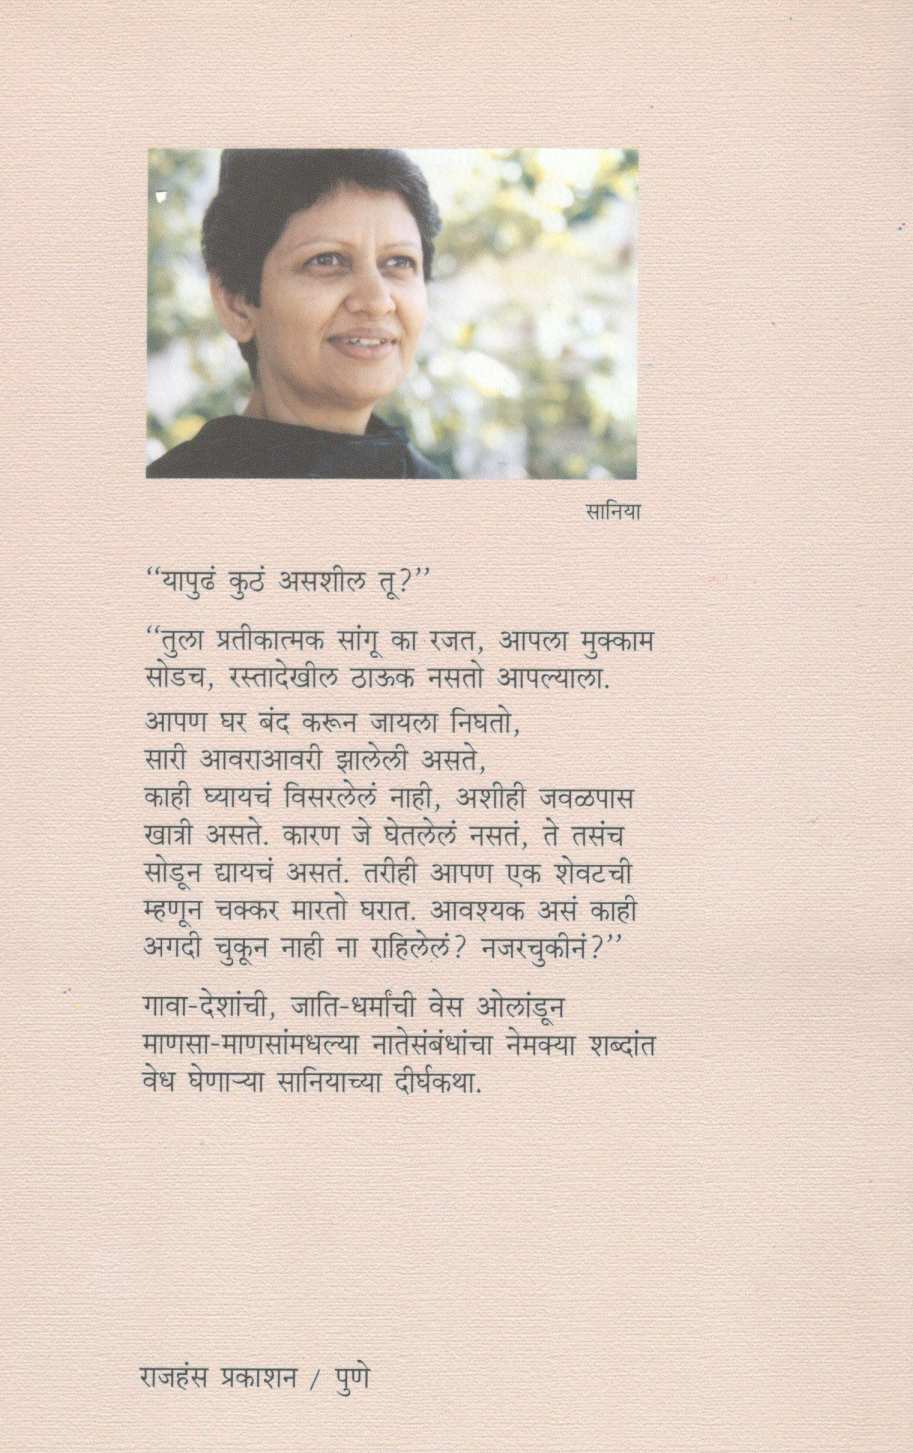 सानिया
“यापुढं कुठं असशील तू?”
“तुला प्रतीकात्मक सांगू का रजत, आपला मुक्काम
सोडच, रस्तादेखील ठाऊक नसतो आपल्याला.
आपण घर बंद करून जायला निघतो,
सारी आवराआवरी झालेली असते,
काही घ्यायचं विसरलेलं नाही, अशीही जवळपास
खात्री असते. कारण जे घेतलेलं नसतं, ते तसंच
सोडून द्यायचं असतं. तरीही आपण एक शेवटची
म्हणून चक्कर मारतो घरात. आवश्यक असं काही
अगदी चुकून नाही ना राहिलेलं? नजरचुकीनं?”
गावा-देशांची, जाति-धर्मांची वेस ओलांडून
माणसा-माणसांमधल्या नातेसंबंधांचा नेमक्या शब्दांत
वेध घेणाऱ्या सानियाच्या दीर्घकथा.
राजहंस प्रकाशन / पुणे